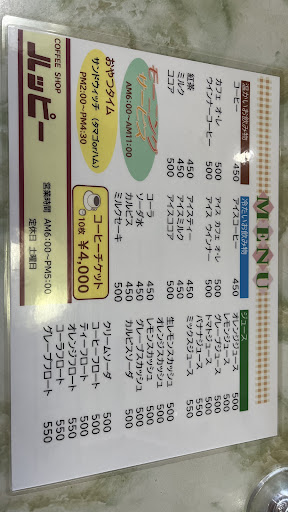 MENU
温かいお飲物
コーヒー 450
カフェ オ・レ 500
ウインナーコーヒー 500
紅茶 450
ミルク 450
ココア 500
冷たいお飲物
アイスコーヒー 450
アイス カフェ オ・レ 500
アイス ウインナー 500
アイスティー 450
アイスミルク 450
アイスココア 500
コーラ 450
ソーダ水 450
カルピス 450
ミルクセーキ 500
ジュース
オレンジジュース 500
グレープジュース 500
レモンジュース 500
トマトジュース 500
バナナジュース 550
ミックスジュース 550
生レモンスカッシュ 500
レモンスカッシュ 500
オレンジスカッシュ 500
グレープスカッシュ 500
カルピスソーダ 500
クリームソーダ 500
コーヒーフロート 500
ティーフロート 500
オレンジフロート 550
コーラフロート 550
グレープフロート 550
モーニングサービス
AM6:00〜AM11:00
おやつタイム
サンドウィッチ (タマゴorハム)
PM2:00〜PM4:30
コーヒーチケット
10枚 ¥4,000
COFFEE SHOP
ルッピー
営業時間 AM6:00〜PM5:00
定休日 土曜日